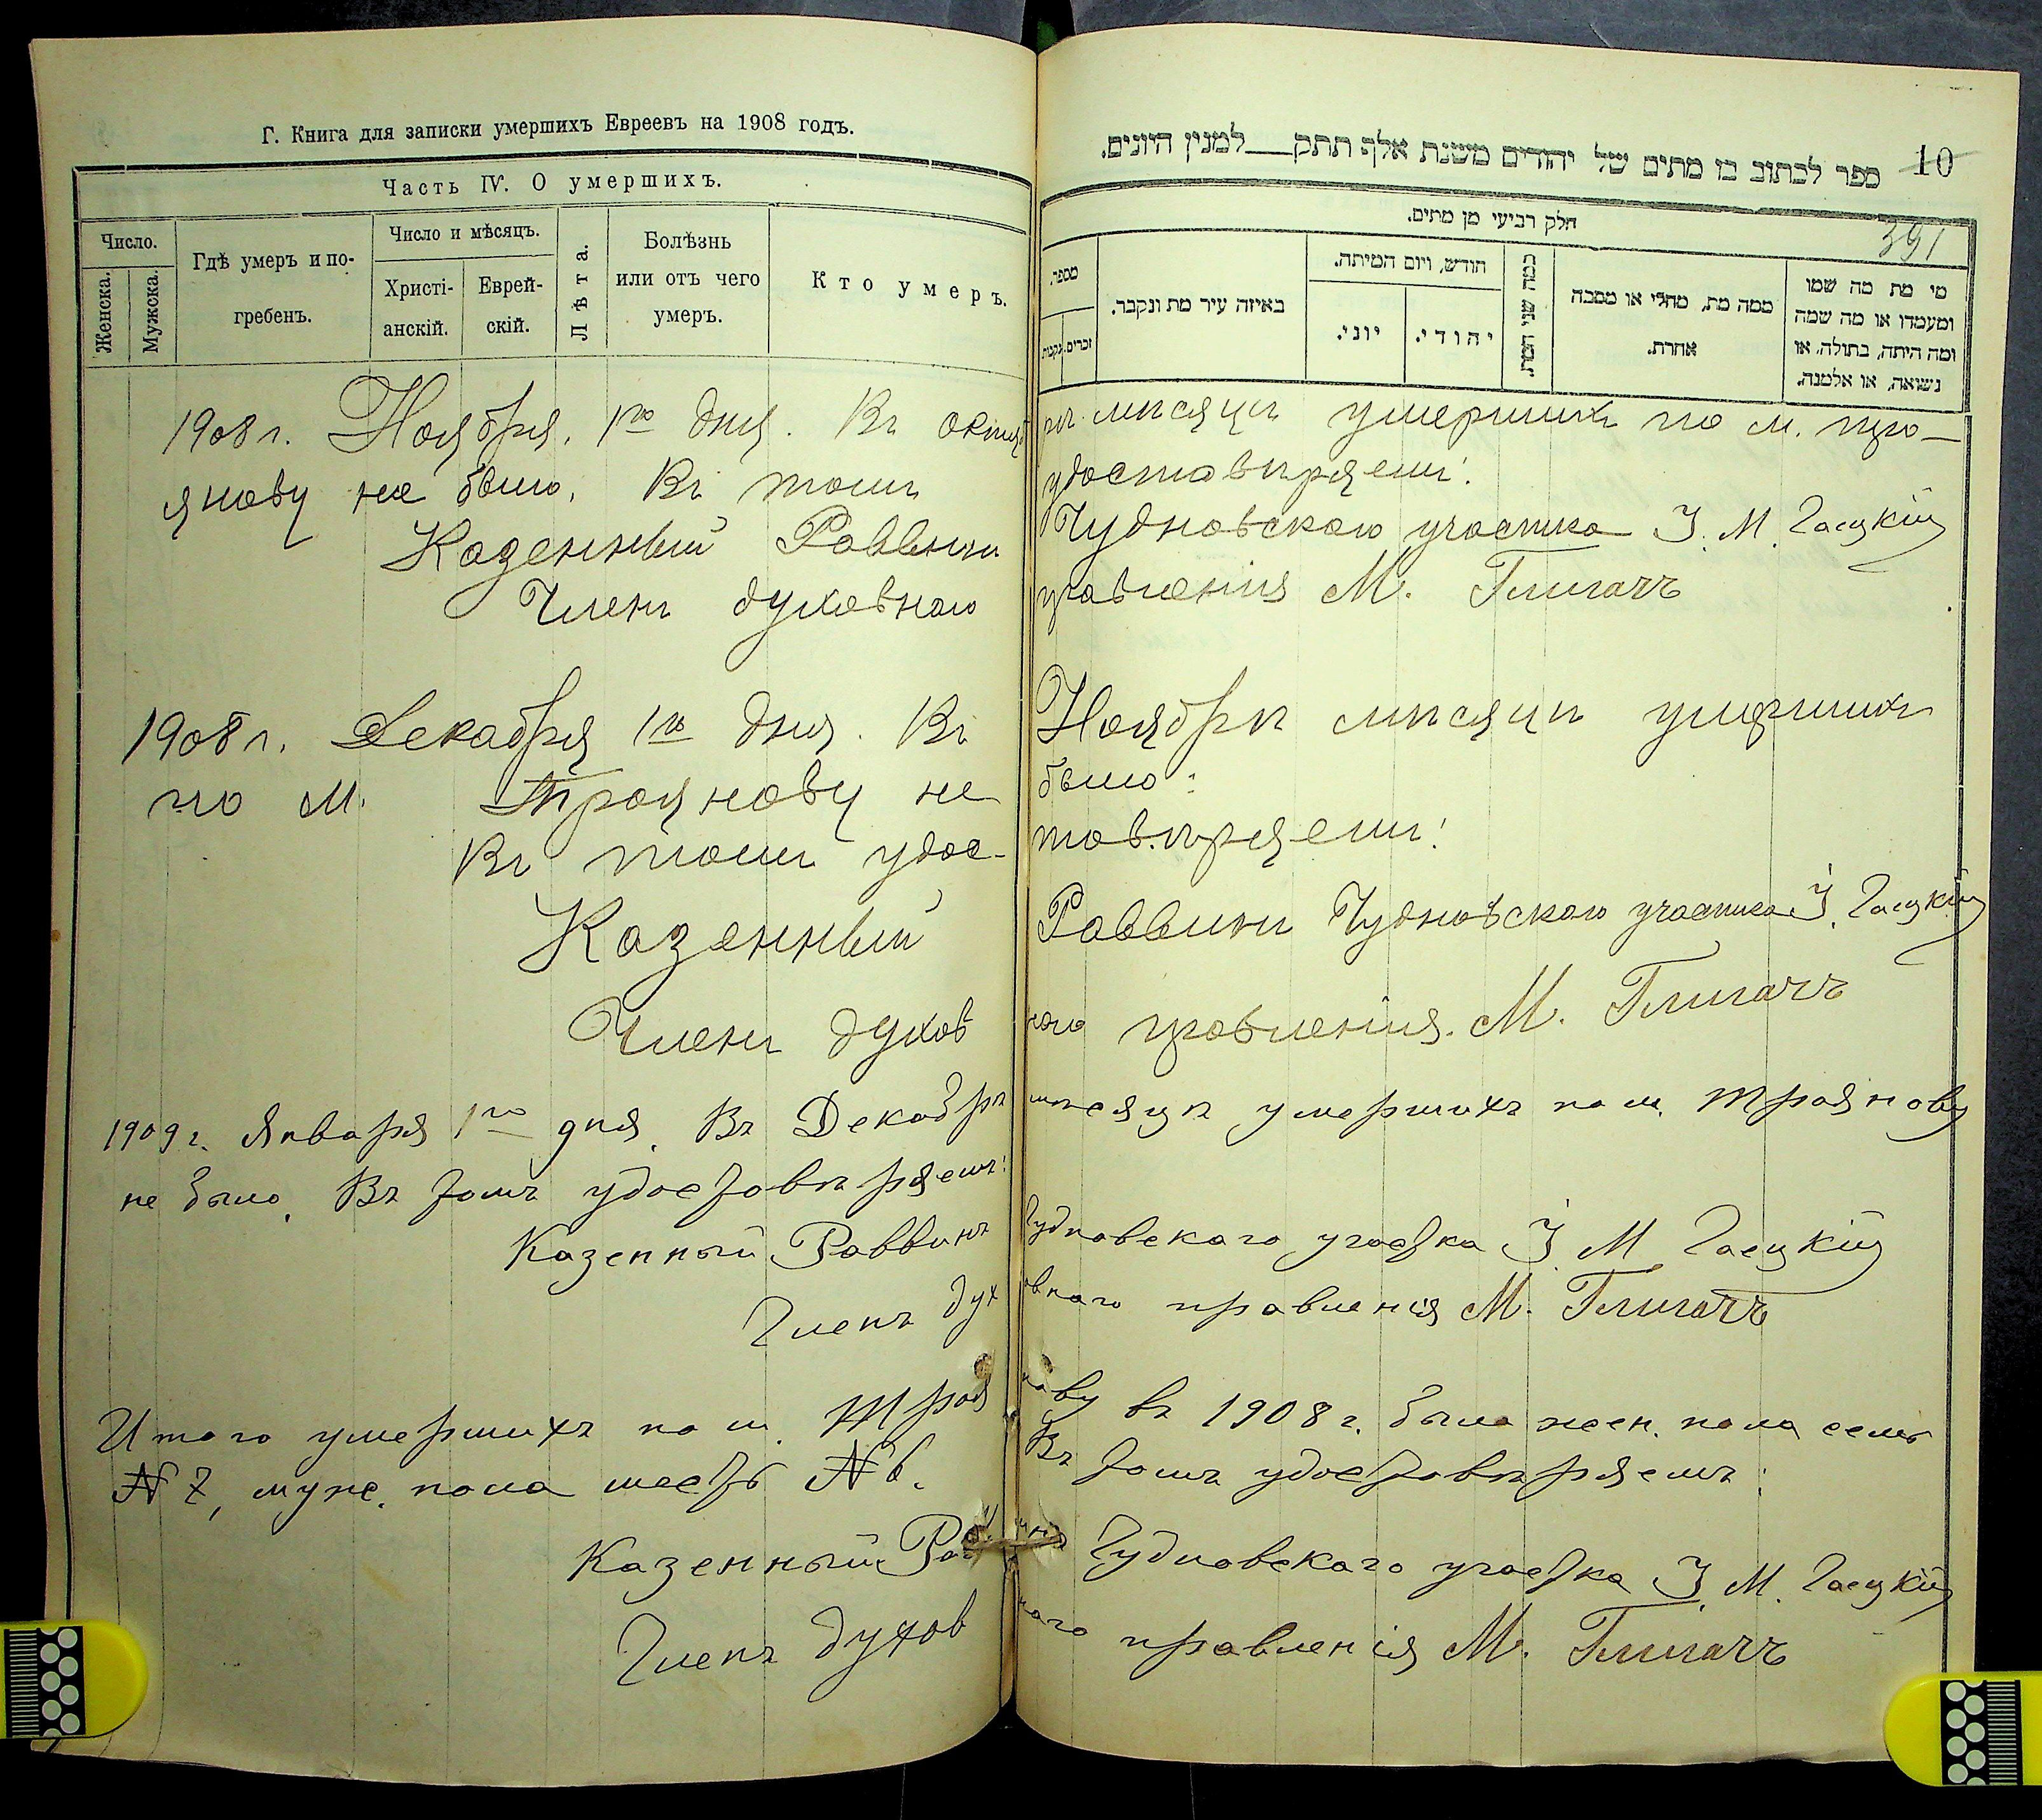 Г. Книга для записки умершихъ Евреевъ на 1908 годъ.
Часть IV. О умершихъ.
Число.
Женска.
Мужска.
Гдѣ умеръ и по-
гребенъ.
Число и мѣсяцъ.
Христі-
анскій.
Еврей-
скій.
Лѣта.
Болѣзнь
или отъ чего
умеръ.
Кто умеръ.
10
ספר לכתוב בו מתים של יהודים משנת אלף תתק___למנין היונים.
391
חלק רביעי מן מתים.
מספר.
זכרים.
נקבות.
באיזה עיר מת ונקבר.
חודש, ויום המיתה.
יוני.
יהודי.
כמה שני המת.
ממה מת, מחלי או מסבה
אחרת.
מי מת מה שמו
ומעמדו או מה שמה
ומה היתה, בתולה, או
נשואה, או אלמנה.
1908 г. Ноября, 1го дня. Въ октяб рѣ мѣсяцѣ умершихъ по м. Тро-
янову не было. Въ томъ удостовѣряемъ:
Казенный Раввинъ Чудновскаго участка І. М. Гасцкій
Членъ духовнаго правленія М. Глигачъ
1908 г. Декабря 1го дня. Въ Ноябрѣ мѣсяцѣ умершихъ
по м. Троянову не было:
Въ томъ удос- товѣряемъ:
Казенный Раввинъ Чудновскаго участка І. Гасцкій
Членъ духов наго правленія. М. Глигачъ
1909 г. Января 1го дня. Въ Декабрѣ мѣсяцѣ умершихъ по м. Троянову
не было. Въ томъ удостовѣряемъ:
Казенный Раввинъ Чудновскаго участка І. М. Гасцкій
Членъ дух овнаго правленія М. Глигачъ
Итого умершихъ по м. Троя нову въ 1908 г. было жен. пола семь
№ 7, муж. пола шесть № 6. Въ томъ удостовѣряемъ:
Казенный Раввинъ Чудновскаго участка І. М. Гасцкій
Членъ духов наго правленія М. Глигачъ